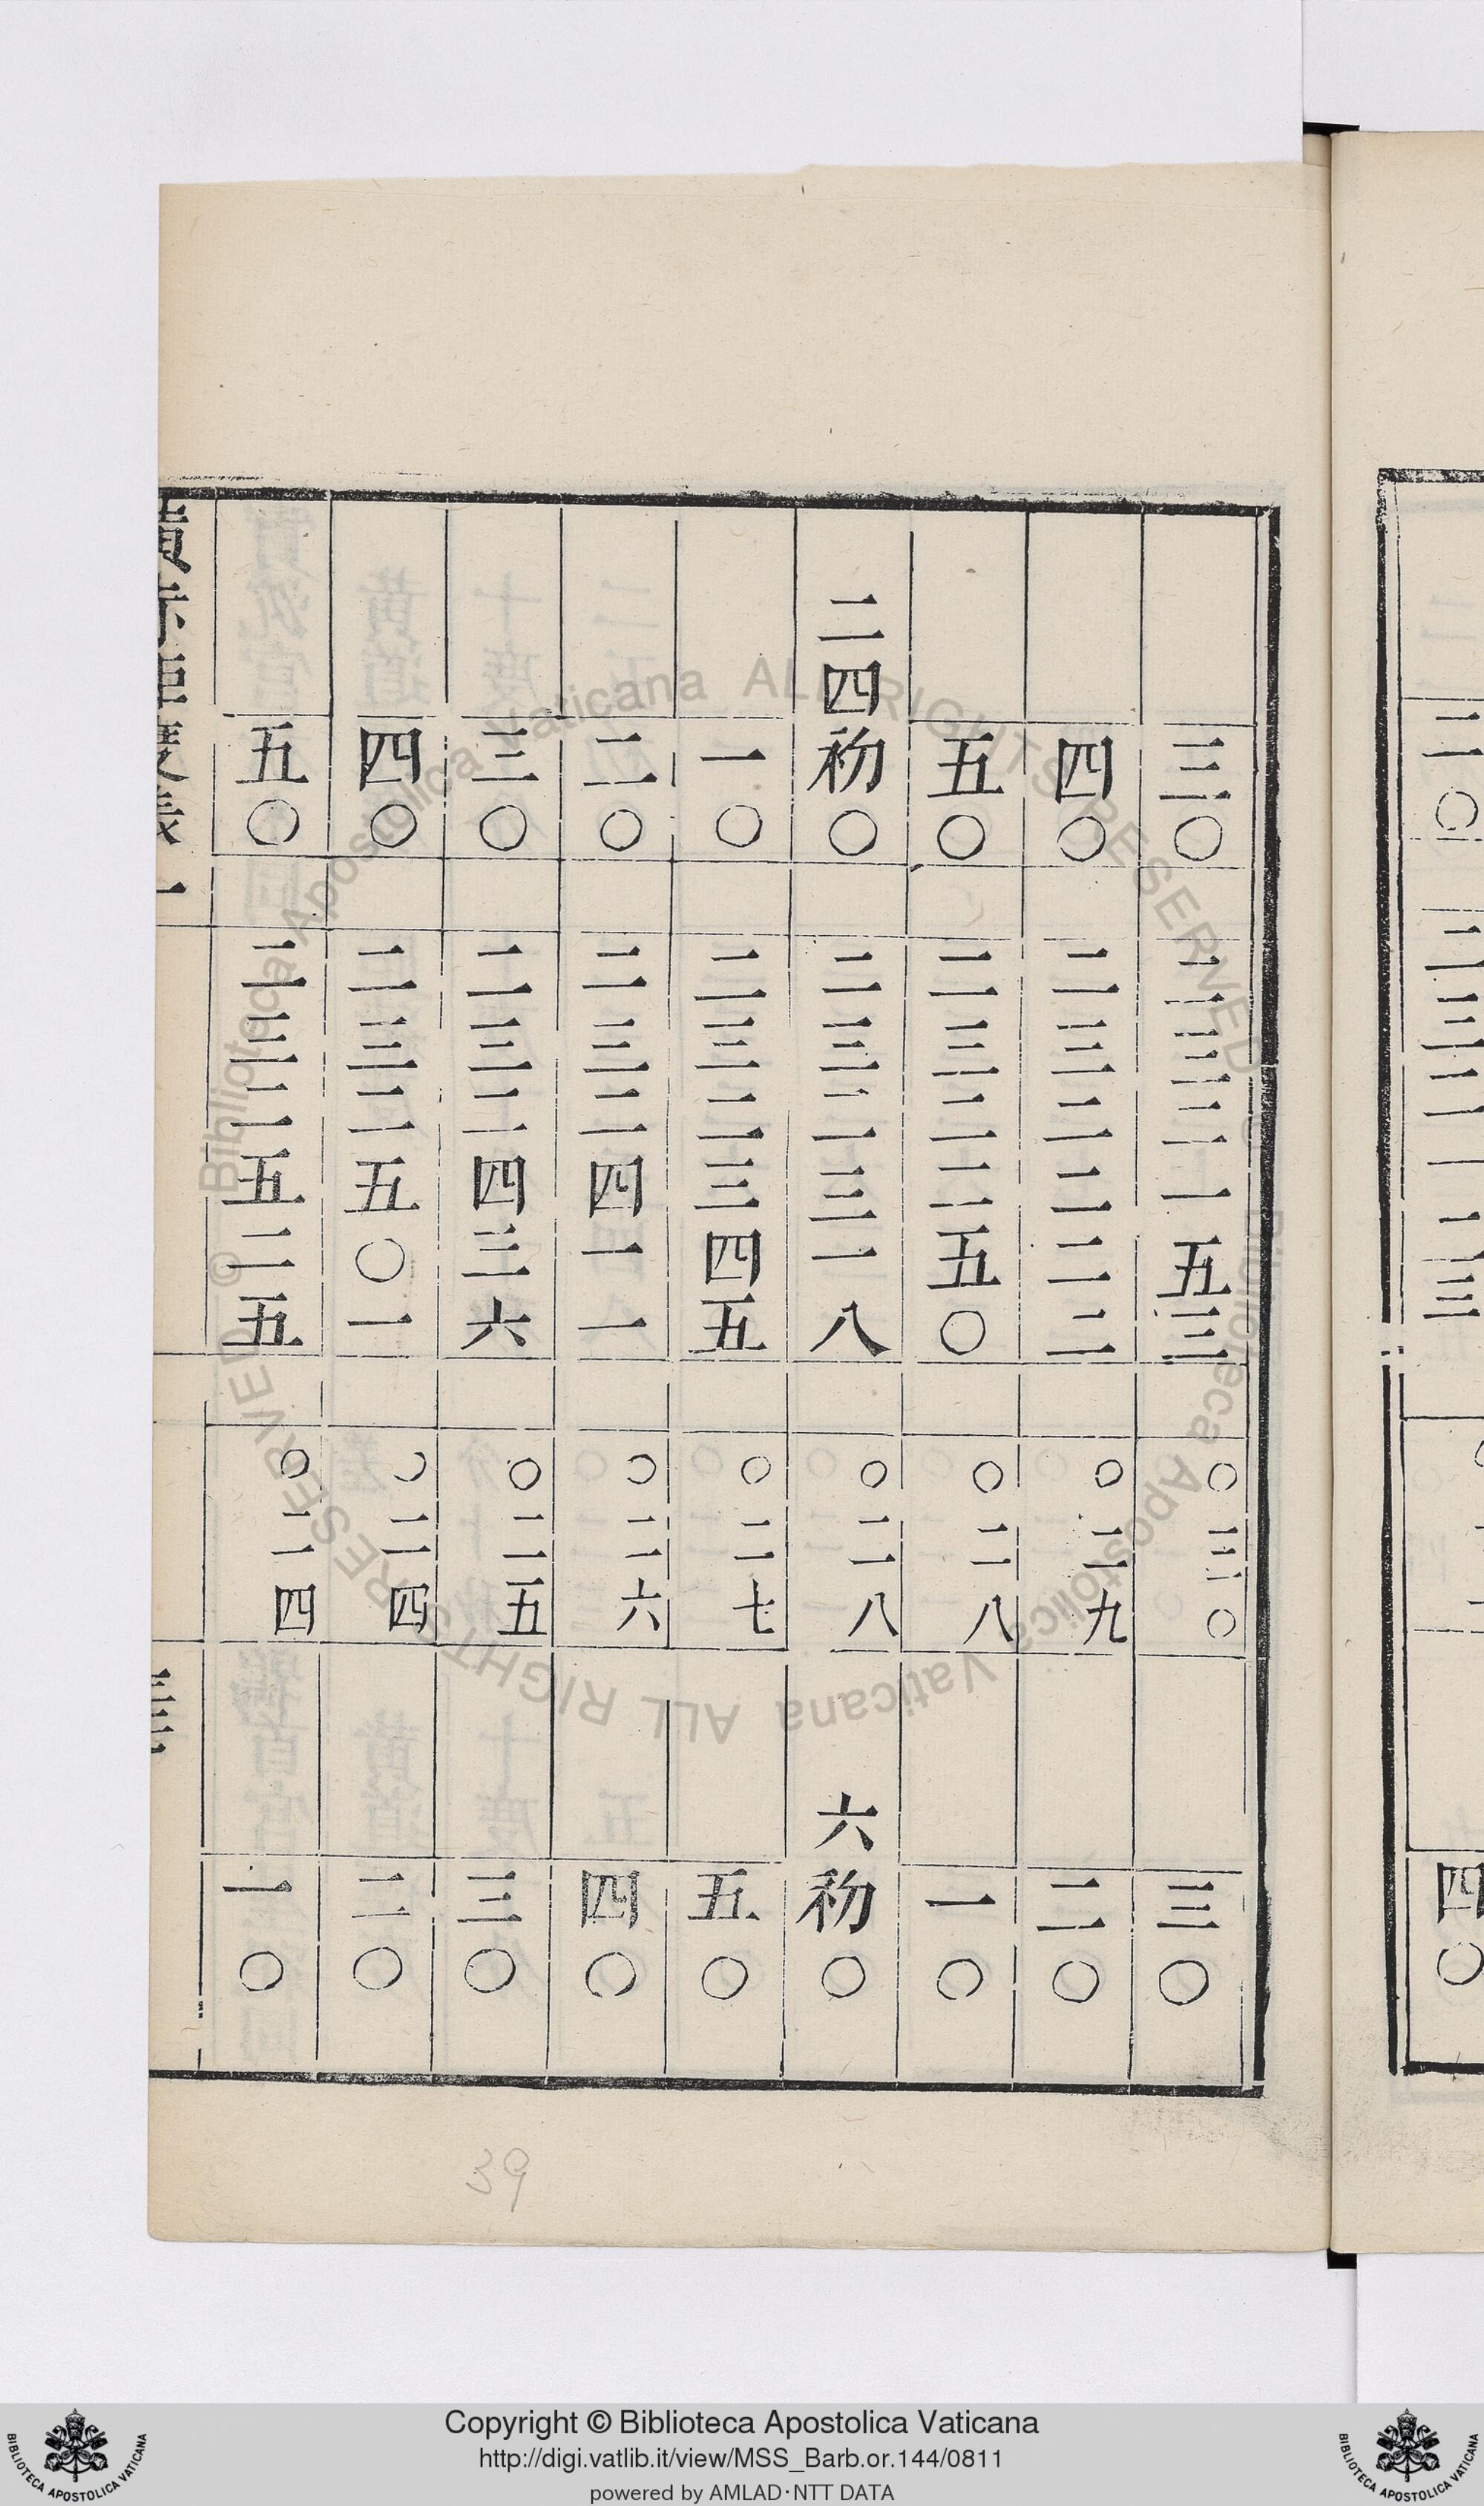 二〇 二三二一二三 四〇
三〇 二三二一五三 〇三〇 三〇
四〇 二三二二二二 〇二九 二〇
五〇 二三二二五〇 〇二八 一〇
二四初〇 二三二三一八 〇二八 六初〇
一〇 二三二三四五 〇二七 五〇
二〇 二三二四一一 〇二六 四〇
三〇 二三二四三六 〇二五 三〇
四〇 二三二五〇一 〇二四 二〇
五〇 二三二五二五 〇二四 一〇
39
© Biblioteca Apostolica Vaticana ALL RIGHTS RESERVED © Biblioteca Apostolica Vaticana ALL RIGHTS RESERVED
Copyright © Biblioteca Apostolica Vaticana
http://digi.vatlib.it/view/MSS_Barb.or.144/0811
powered by AMLAD·NTT DATA
BIBLIOTECA APOSTOLICA VATICANA
BIBLIOTECA APOSTOLICA VATICANA